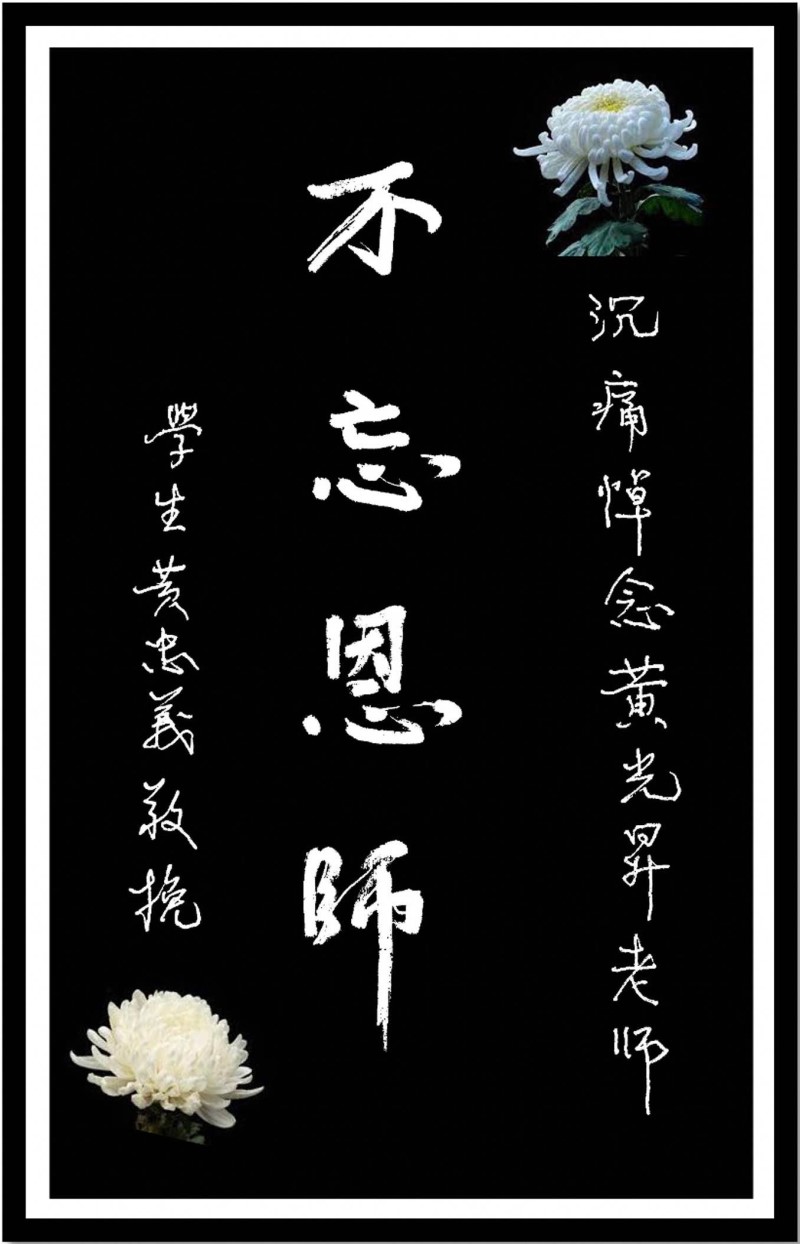 沉痛悼念黃光昇老师
不忘恩師
學生黄忠義敬挽